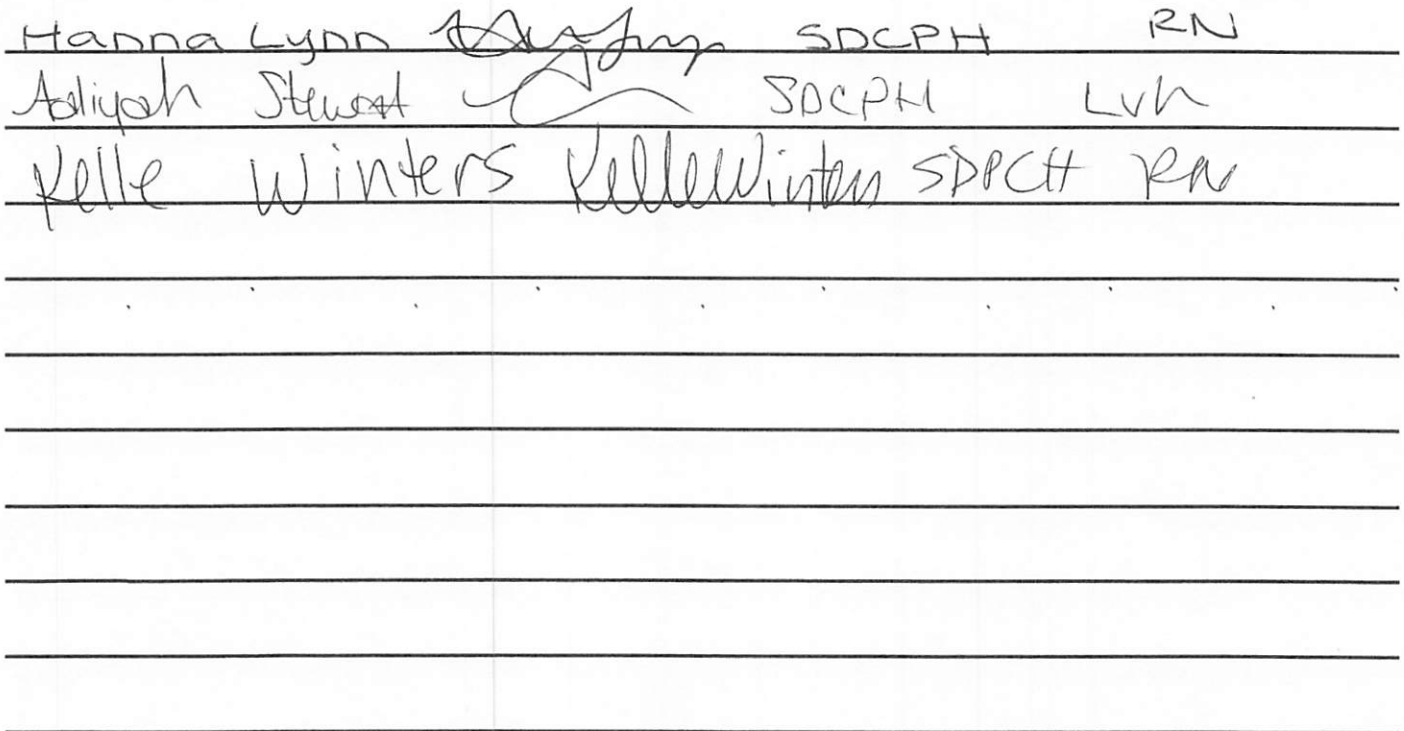 Hanna Lynn SDCPH RN
Aaliyah Stewart SDCPH Lvn
Kelle Winters Kelle Winters SDPCH RN